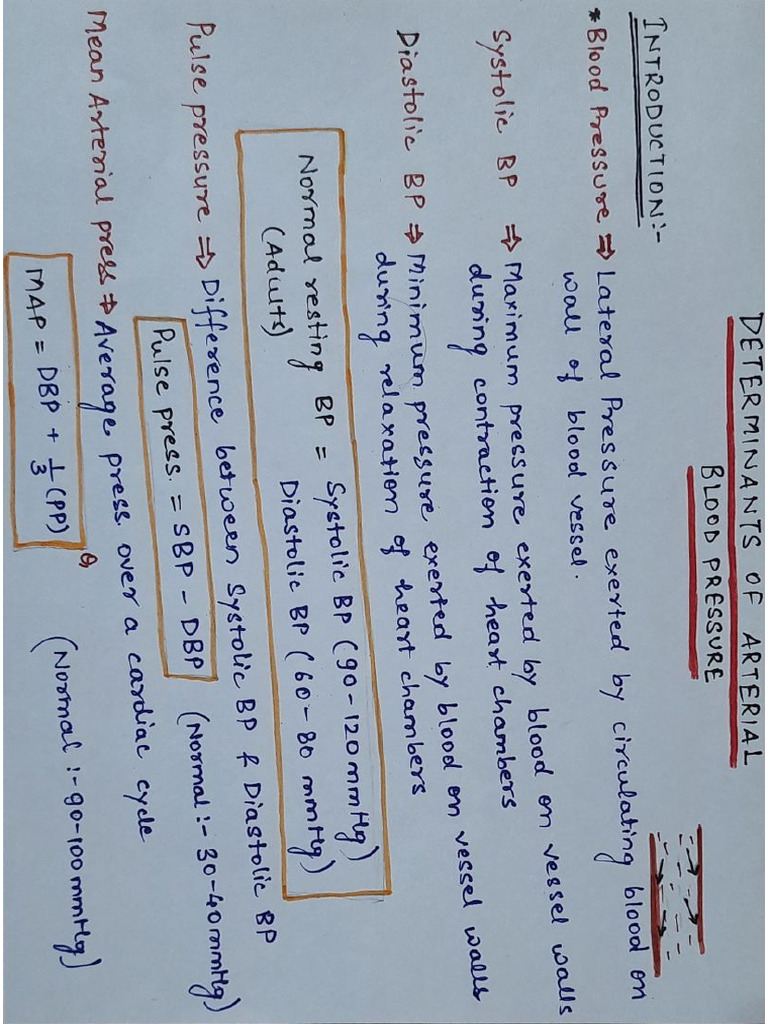 DETERMINANTS OF ARTERIAL
BLOOD PRESSURE
INTRODUCTION:-
* Blood Pressure ⇒ Lateral Pressure exerted by circulating blood on
wall of blood vessel.
Systolic BP ⇒ Maximum pressure exerted by blood on vessel walls
during contraction of heart chambers
Diastolic BP ⇒ Minimum pressure exerted by blood on vessel walls
during relaxation of heart chambers
Normal resting BP = Systolic BP (90-120mmHg)
(Adults) Diastolic BP (60-80 mmHg)
Pulse pressure ⇒ Difference between Systolic BP & Diastolic BP
Pulse press. = SBP - DBP (Normal:- 30-40mmHg)
Mean Arterial press ⇒ Average press over a cardiac cycle
MAP = DBP + 1/3 (PP) (Normal:- 90-100mmHg)